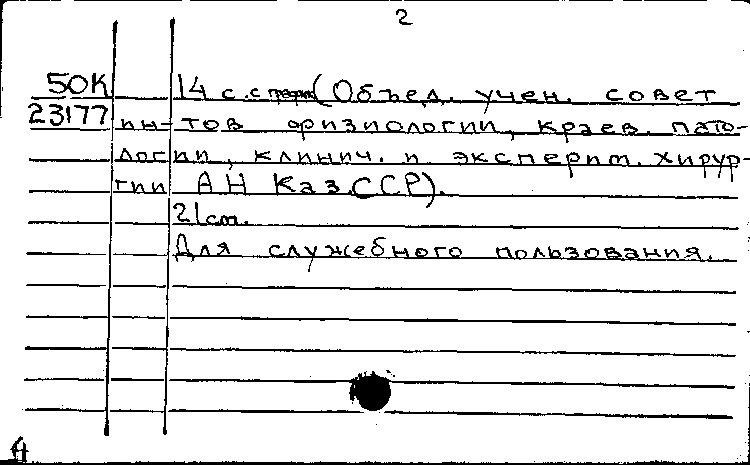 2
50К 14 с. с граф (Объед. учен. совет
23177 ин-тов физиологии, краев. пато-
логии, клинич. и эксперим. хирур-
гии АН Каз.ССР).
21cm.
Для служебного пользования.